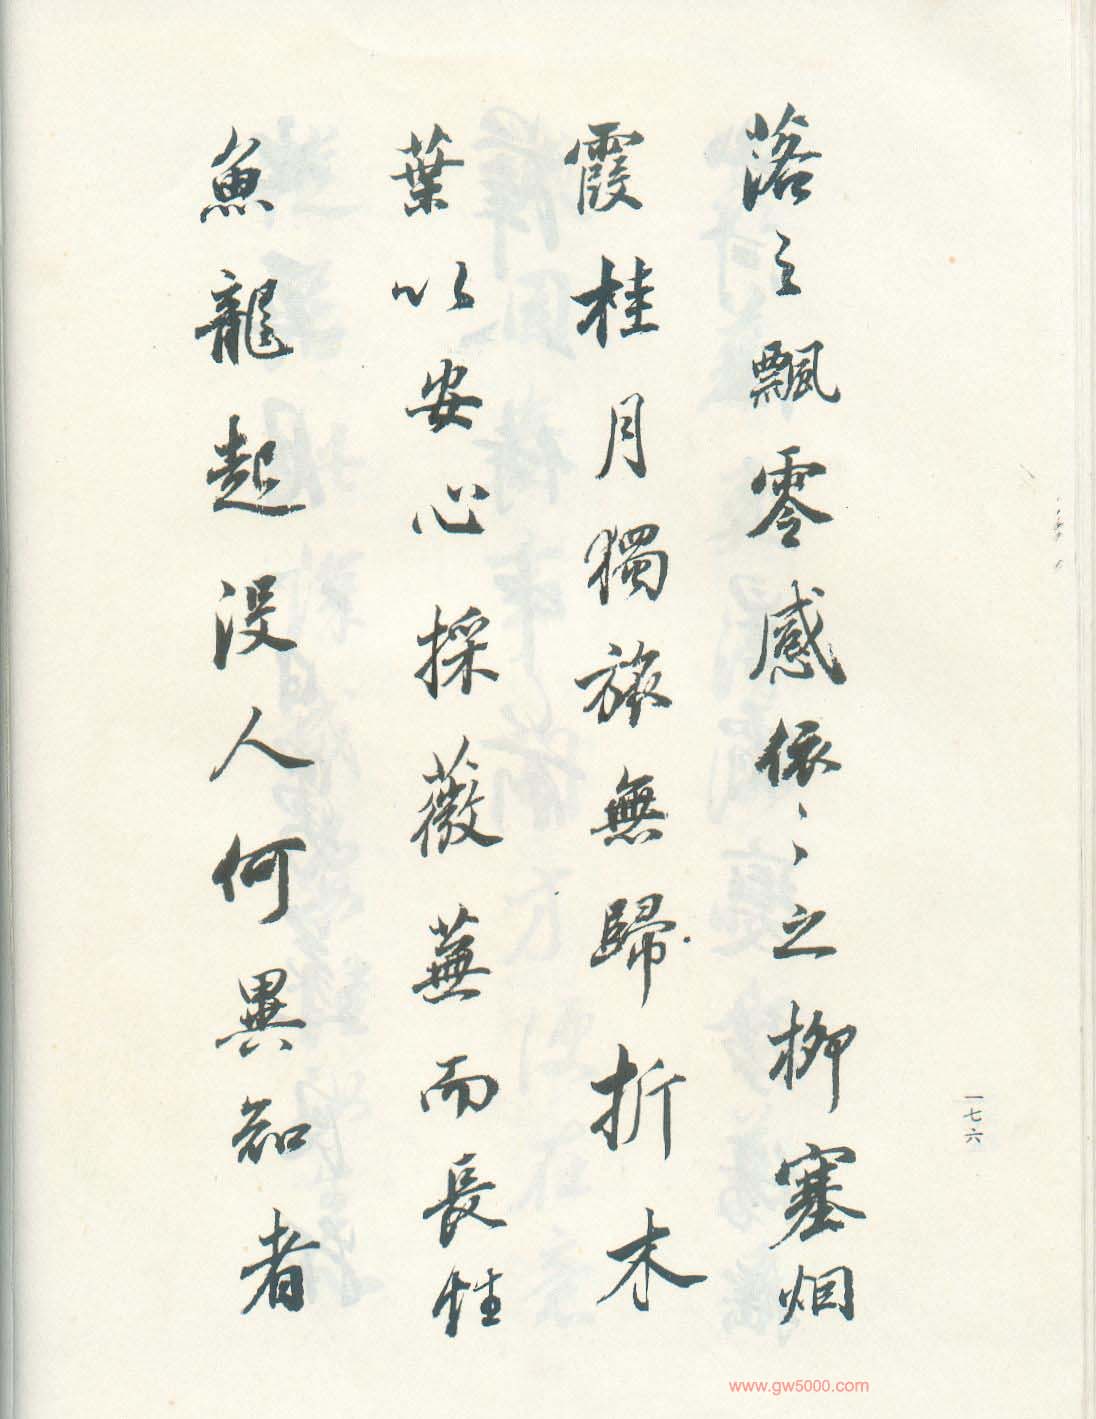 落之飄零感依〻之柳塞烟
霞桂月獨旅無歸折木
葉以安心採薇蕪而長性
魚龍起沒人何異知者
一七六
www.gw5000.com